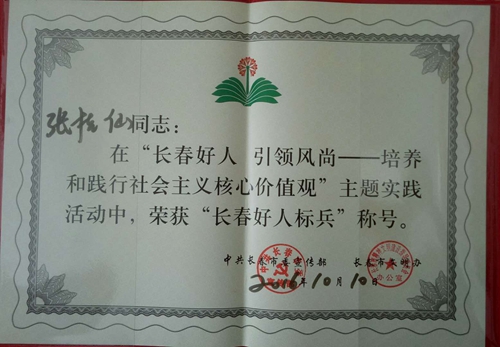 张桂仙同志：
在“长春好人 引领风尚——培养
和践行社会主义核心价值观”主题实践
活动中，荣获“长春好人标兵”称号。
中共长春市委宣传部 长春市文明办
2016年10月10日